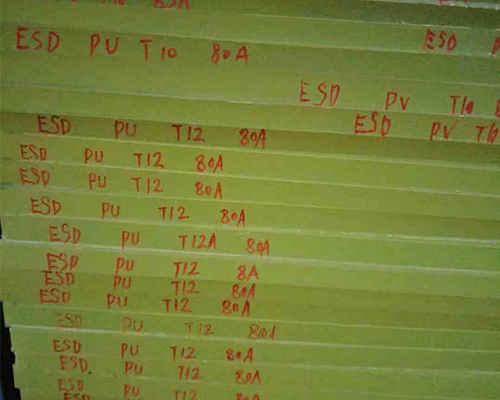 80A
ESD PU T10 80A ESD
ESD PV T10
ESD PU T12 80A ESD PV T10
ESD PU T12 80A
ESD PU T12 80A
ESD PU T12 80A
ESD PU T12A 80A
ESD PU T12 8A
ESD PU T12 80A
ESD PU T12 80A
ESD PU T12 80A
ESD PU T12 80A
ESD PU T12 80A
ESD PU T12
ESD